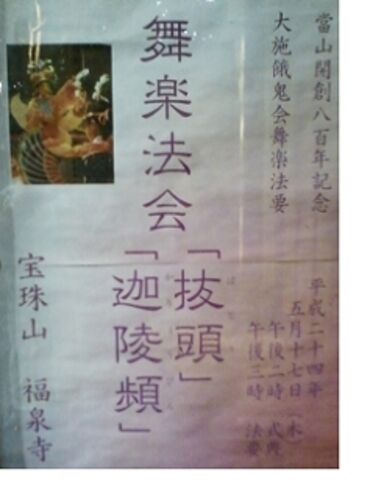 當山開創八百年記念
大施餓鬼会舞楽法要
平成二十四年
五月十七日(木)
午後二時 式典
午後三時 法要
舞楽法会
「抜頭」
「迦陵頻」
宝珠山 福泉寺